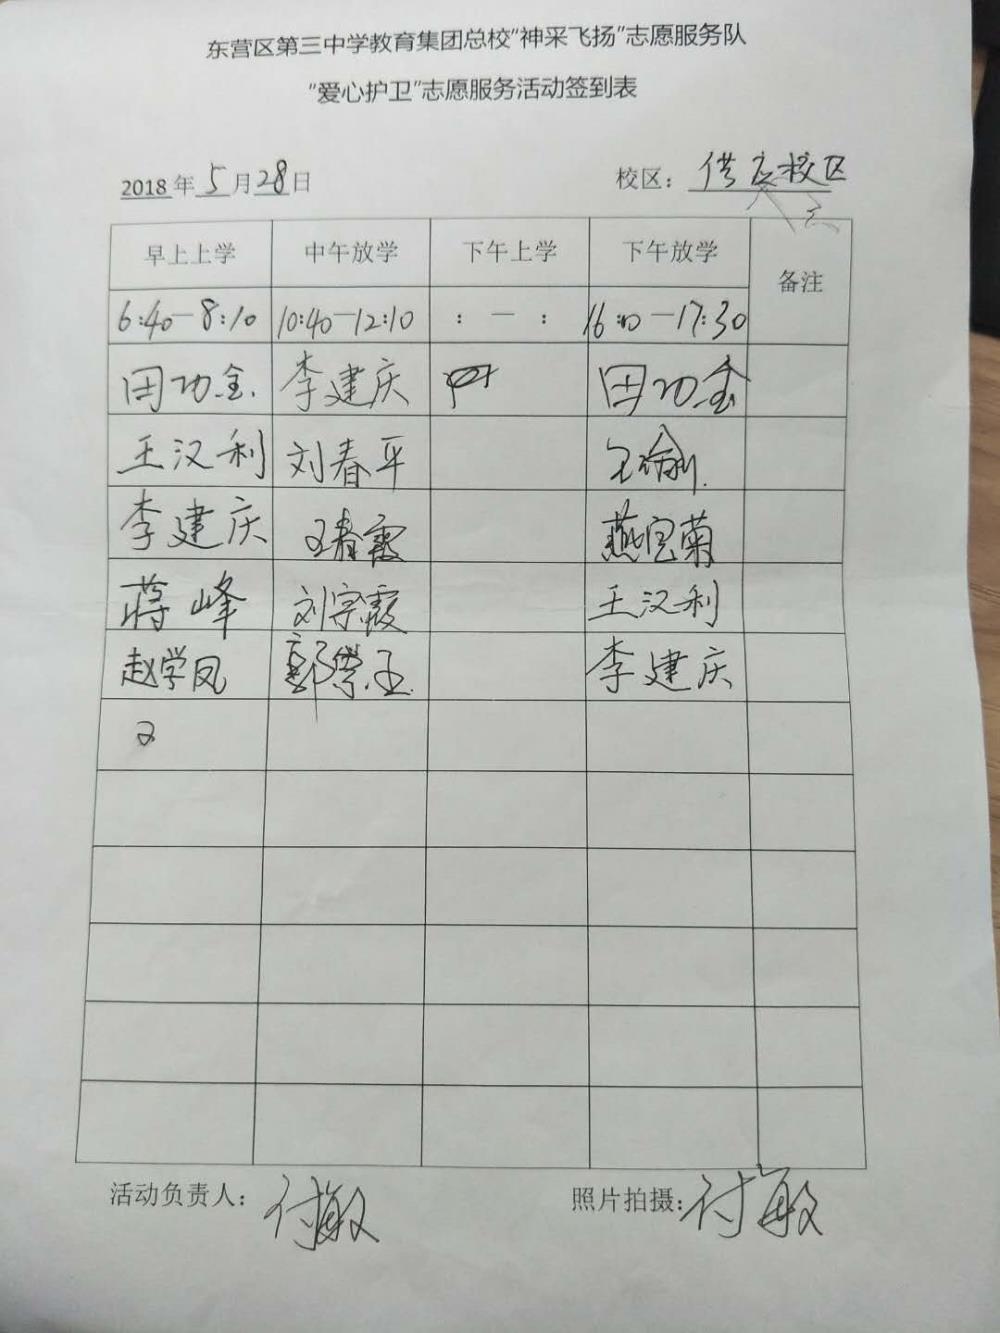 东营区第三中学教育集团总校"神采飞扬"志愿服务队
"爱心护卫"志愿服务活动签到表
2018年5月28日 校区：供应校区
早上上学 中午放学 下午上学 下午放学 备注
6:40-8:10 10:40-12:10 : - : 16:10-17:30
田功金 李建庆 田功金
王汉利 刘春平
李建庆 王春霞 燕宝菊
蒋峰 刘宗霞 王汉利
赵学凤 李建庆
活动负责人：付敏 照片拍摄：付敏